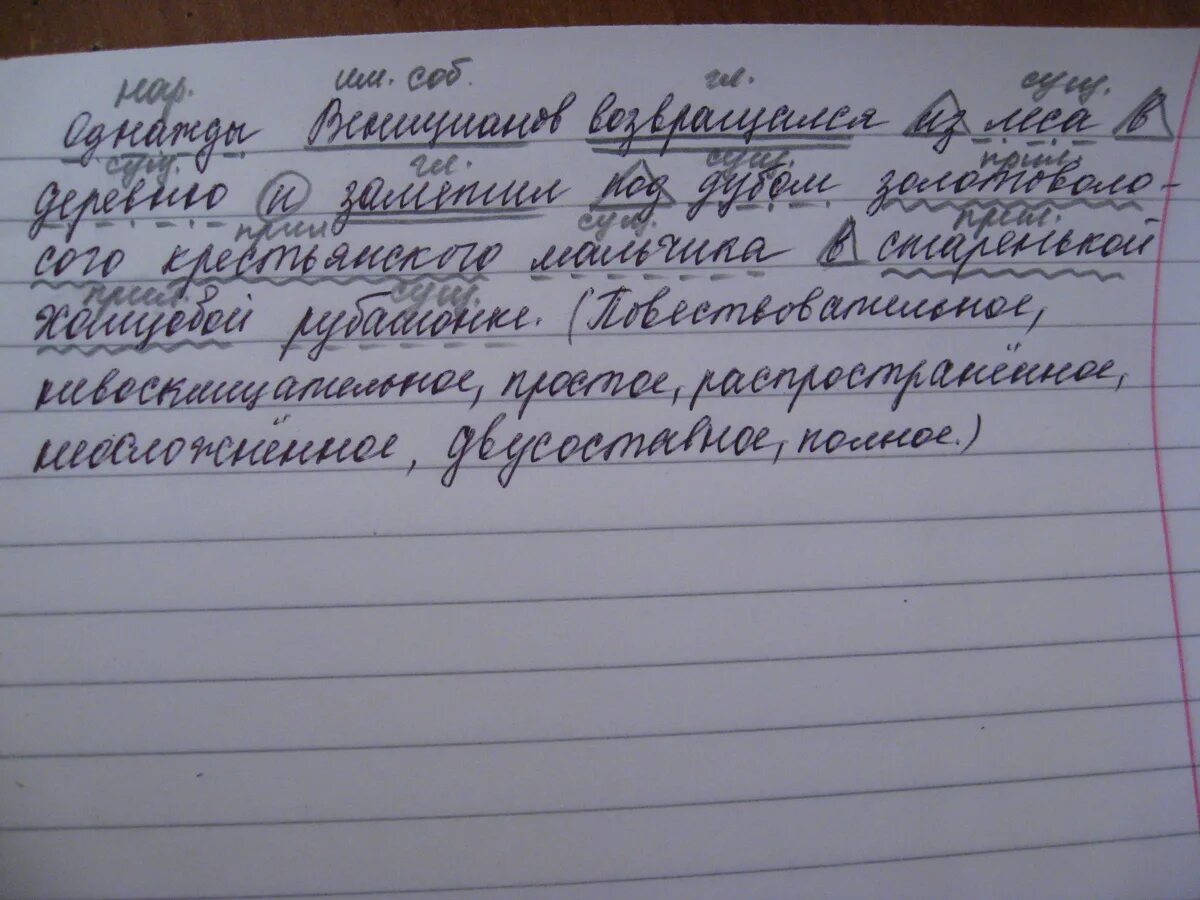 нар. им. соб. гл. сущ.
Однажды Венецианов возвращался из леса в
сущ. гл. сущ. прил.
деревню и заметил под дубом золотоволо-
прил сущ. прил.
сого крестьянского мальчика в старенькой
прил. сущ.
холщовой рубашонке. (Повествовательное,
невосклицательное, простое, распространённое,
неосложнённое, двусоставное, полное.)